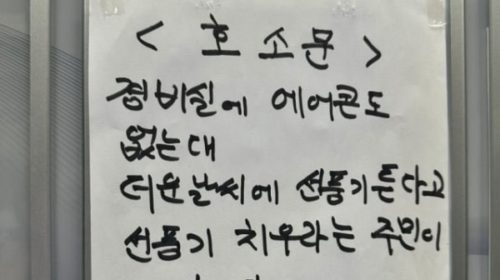 < 호 소 문 >
경비실에 에어콘도
없는대
더운날씨에 선풍기튼다고
선풍기 치우라는 주민이